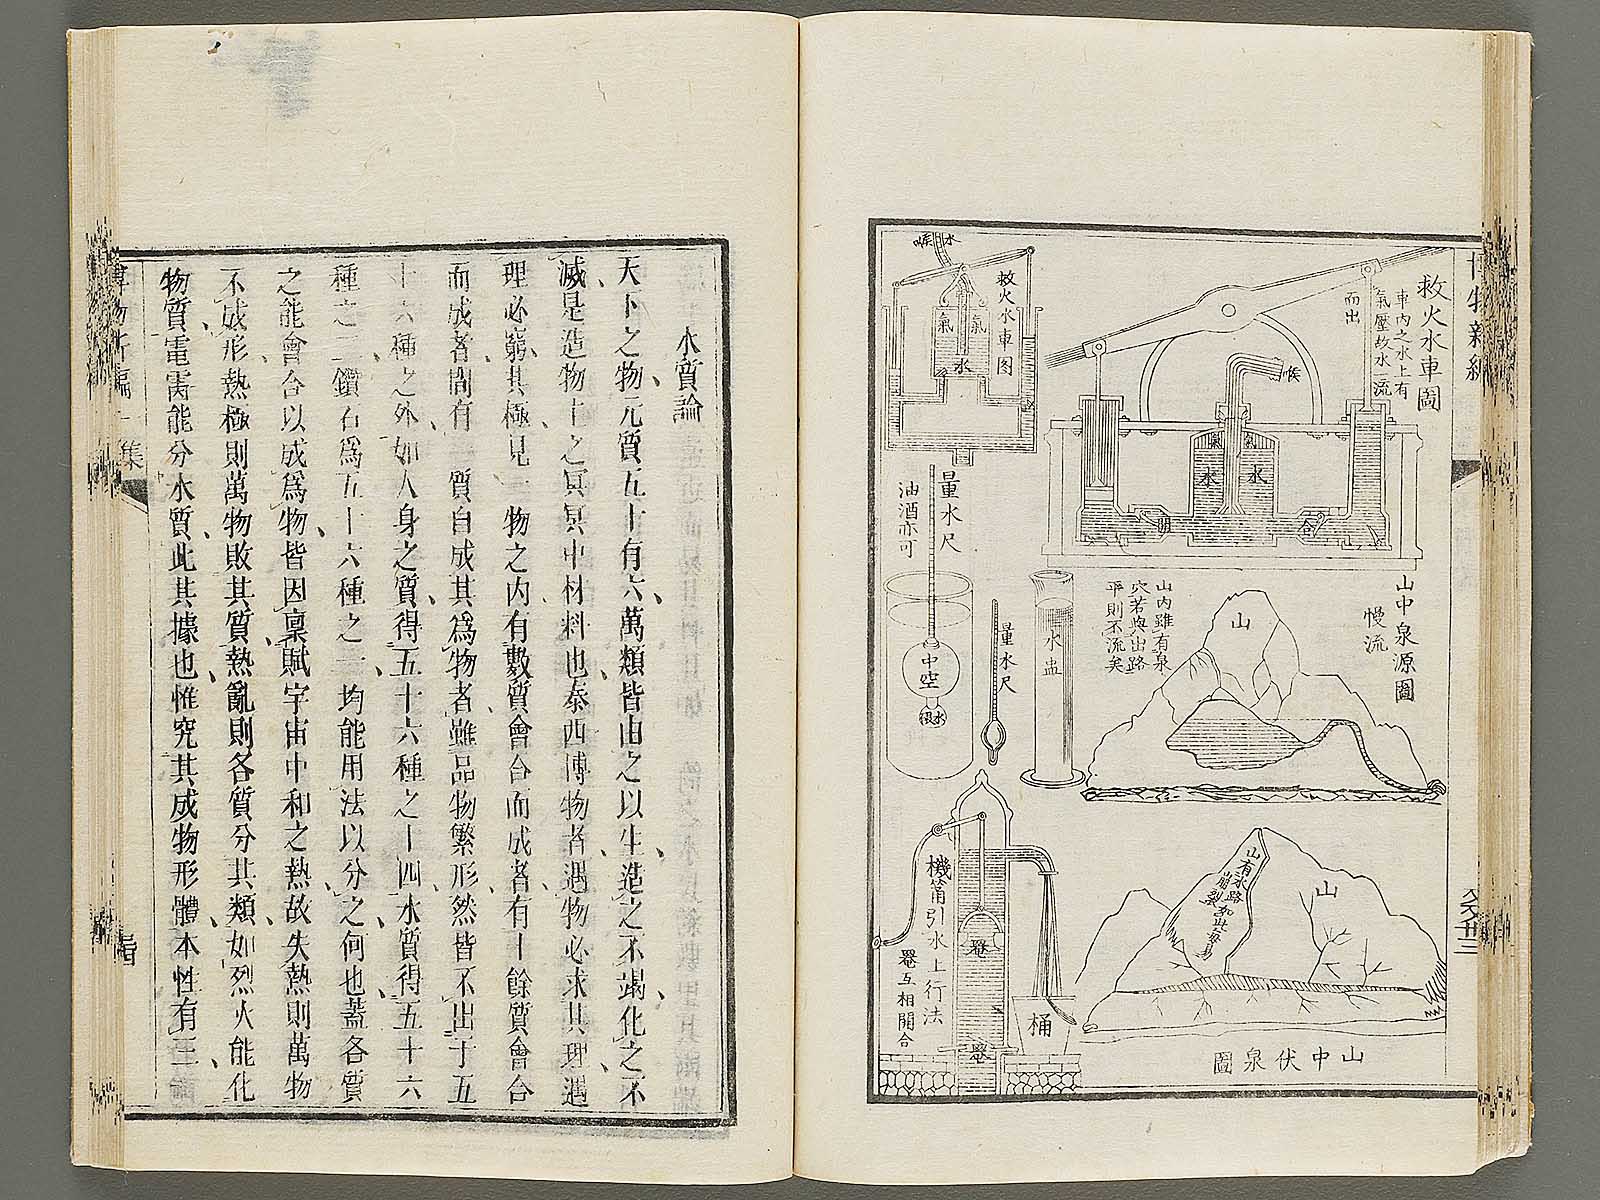 博物新編
救火水車圖
車內之水上有
氣壓故水一流
而出
喉
氣
氣
水
水
開
合
救火水車图
水
喉
氣
氣
水
山中泉源圖
慢流
山
山內雖有泉
穴若與出路
平則不流矣
量水尺
油酒亦可
中空
水銀
量水尺
水盅
山有水路
山崩裂
如此每易
山
山中伏泉圖
機筩引水上行法
罨互相開合
罨
罨
桶
水質論
天下之物元質五十有六萬類皆由之以生造之不竭化之不
滅是造物主之冥冥中材料也泰西博物者遇物必求其理遇
理必窮其極見一物之內有數質會合而成者有十餘質會合
而成者間有一質自成其為物者雖品物繁形然皆不出于五
十六種之外如人身之質得五十六種之十四水質得五十六
種之二鑽石為五十六種之一均能用法以分之何也蓋各質
之能會合以成為物皆因稟賦宇宙中和之熱故失熱則萬物
不成形熱極則萬物敗其質熱亂則各質分其類如烈火能化
物質電氣能分水質此其據也惟究其成物形體本性有三論
博物新編一集